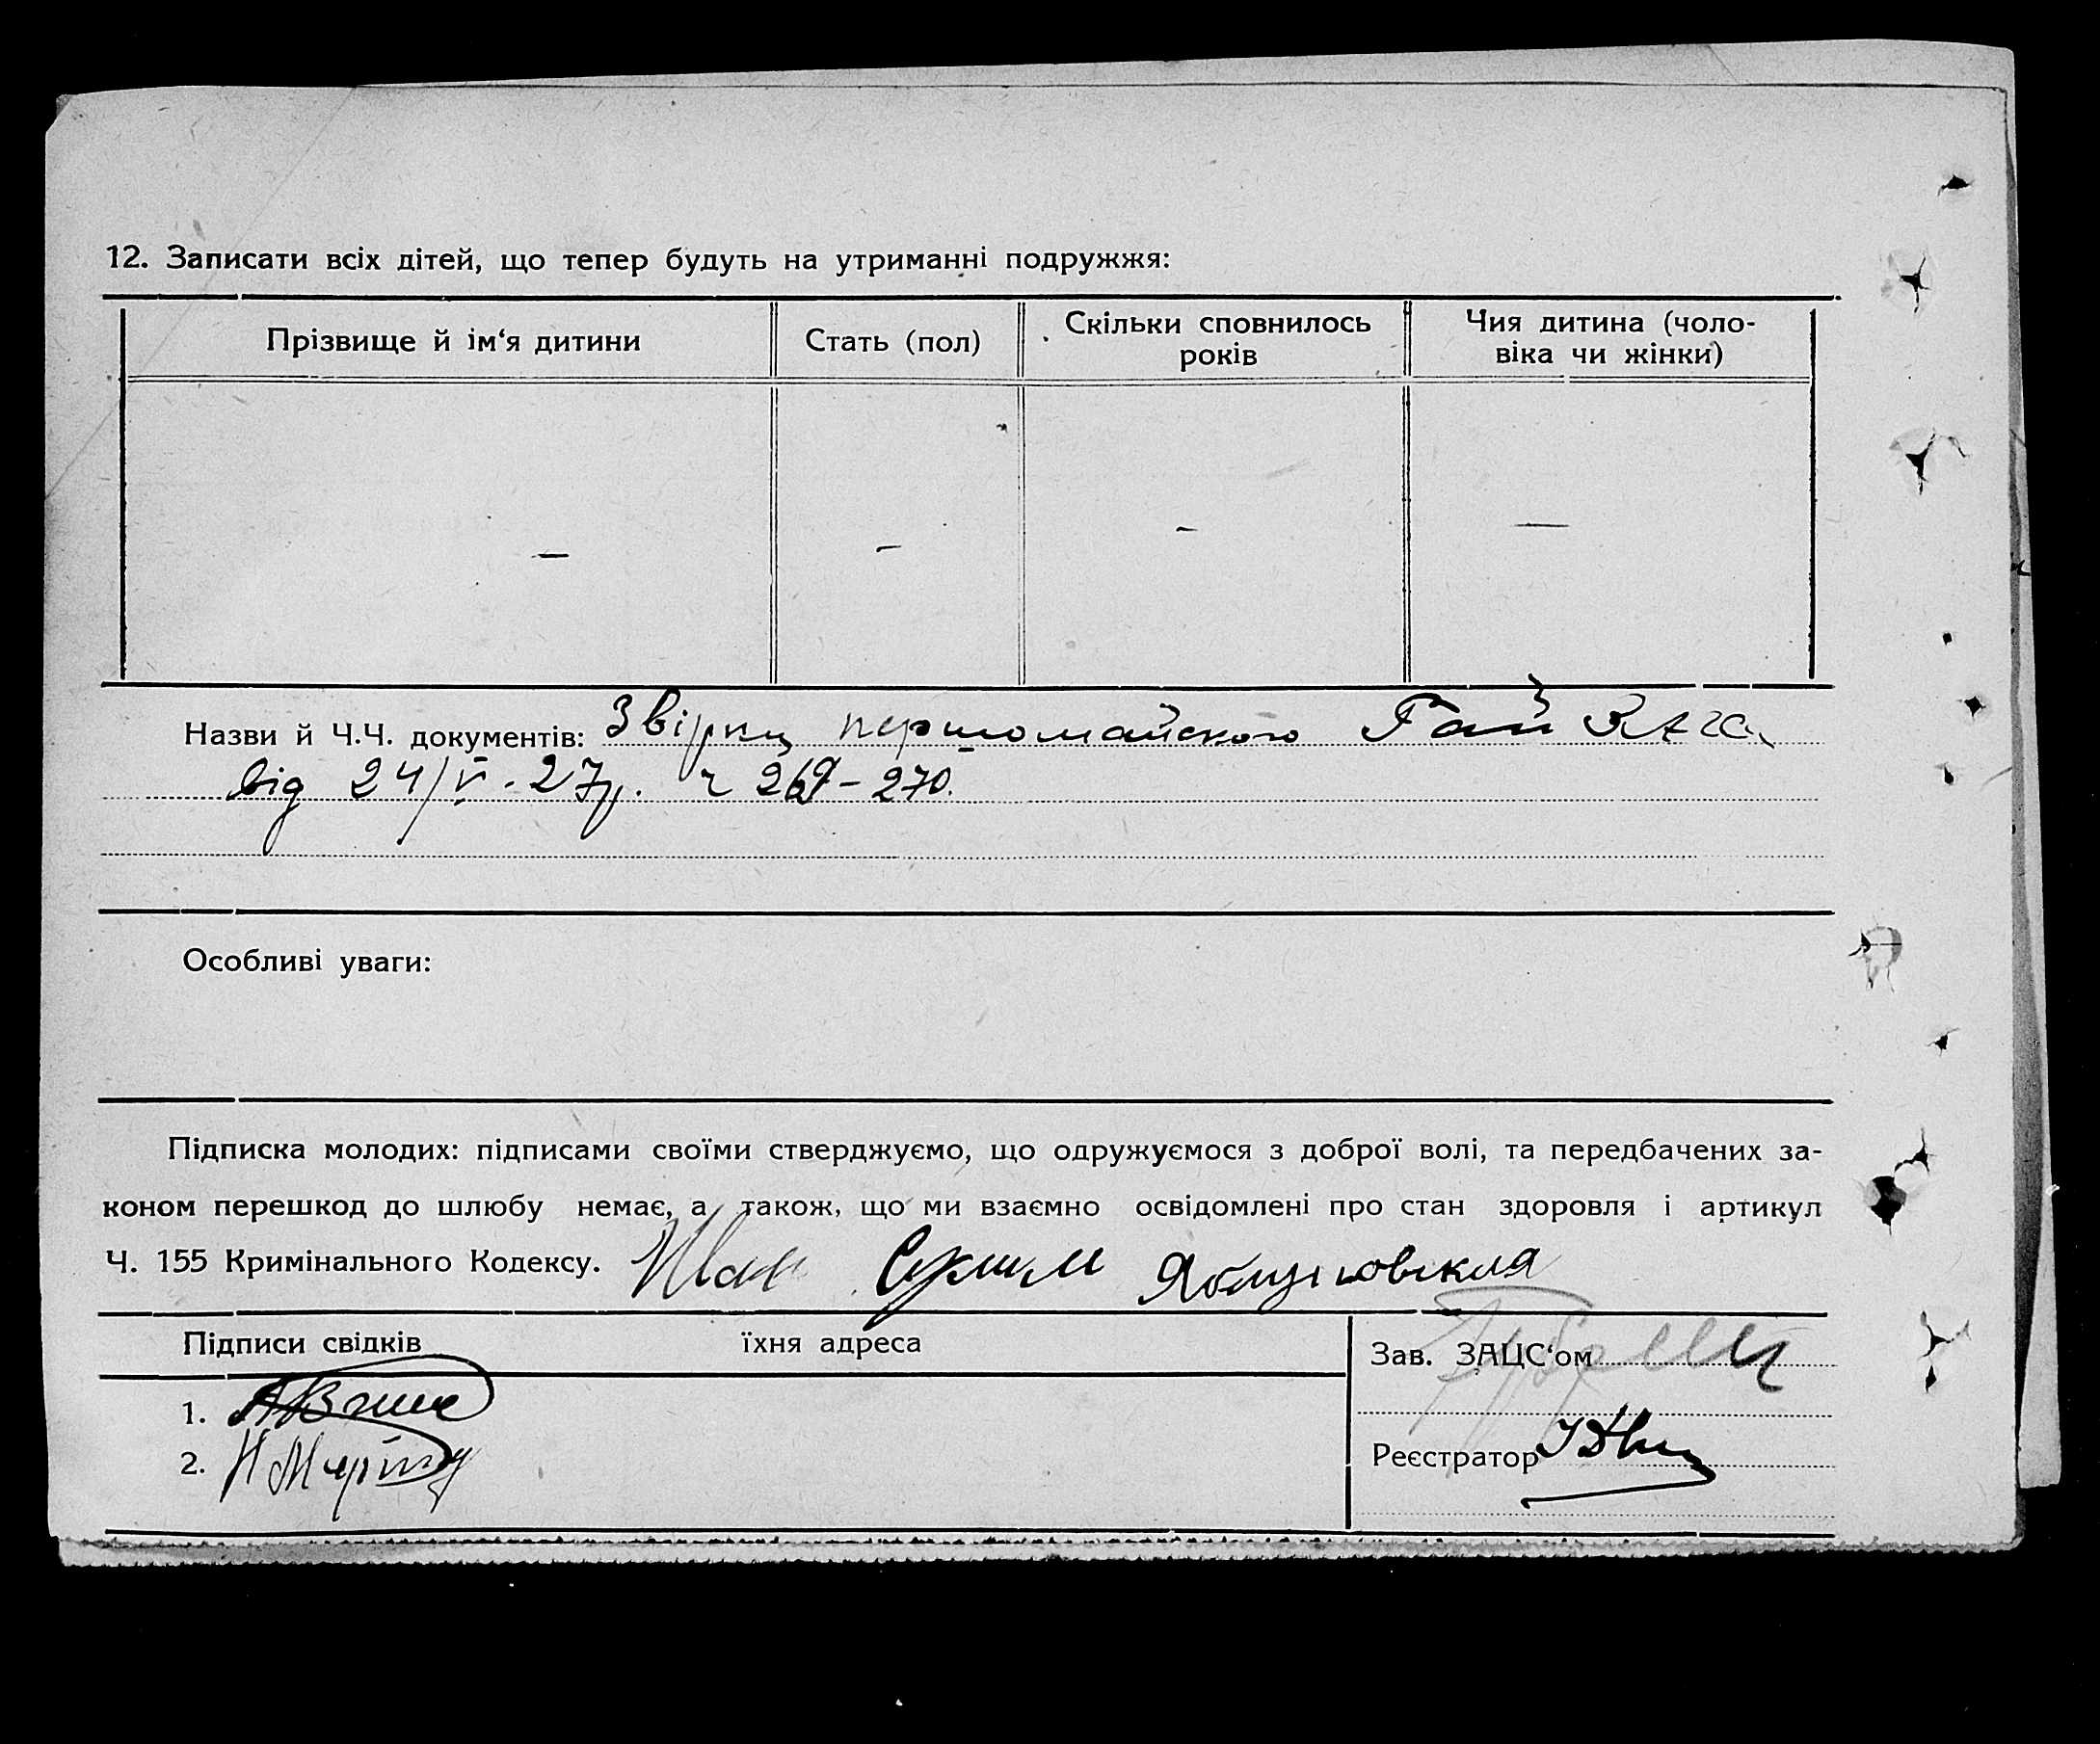 12. Записати всіх дітей, що тепер будуть на утриманні подружжя:
Прізвище й ім‘я дитини
Стать (пол)
Скільки сповнилось
років
Чия дитина (чоло-
віка чи жінки)
— — — —
Назви й Ч.Ч. документів: Звірки першомайского
від 24/V - 27р. ч 269 - 270.
Особливі уваги:
Підписка молодих: підписами своїми стверджуємо, що одружуємося з доброї волі, та передбачених за-
коном перешкод до шлюбу немає, а також, що ми взаємно освідомлені про стан здоровля і артикул
Ч. 155 Кримінального Кодексу. Иван
Підписи свідків їхня адреса
Зав. ЗАЦС‘ом
1.
2.
Реєстратор